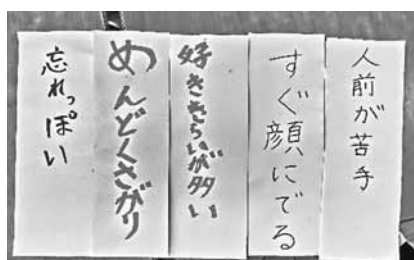 人前が苦手
すぐ顔にでる
好ききらいが多い
めんどくさがり
忘れっぽい